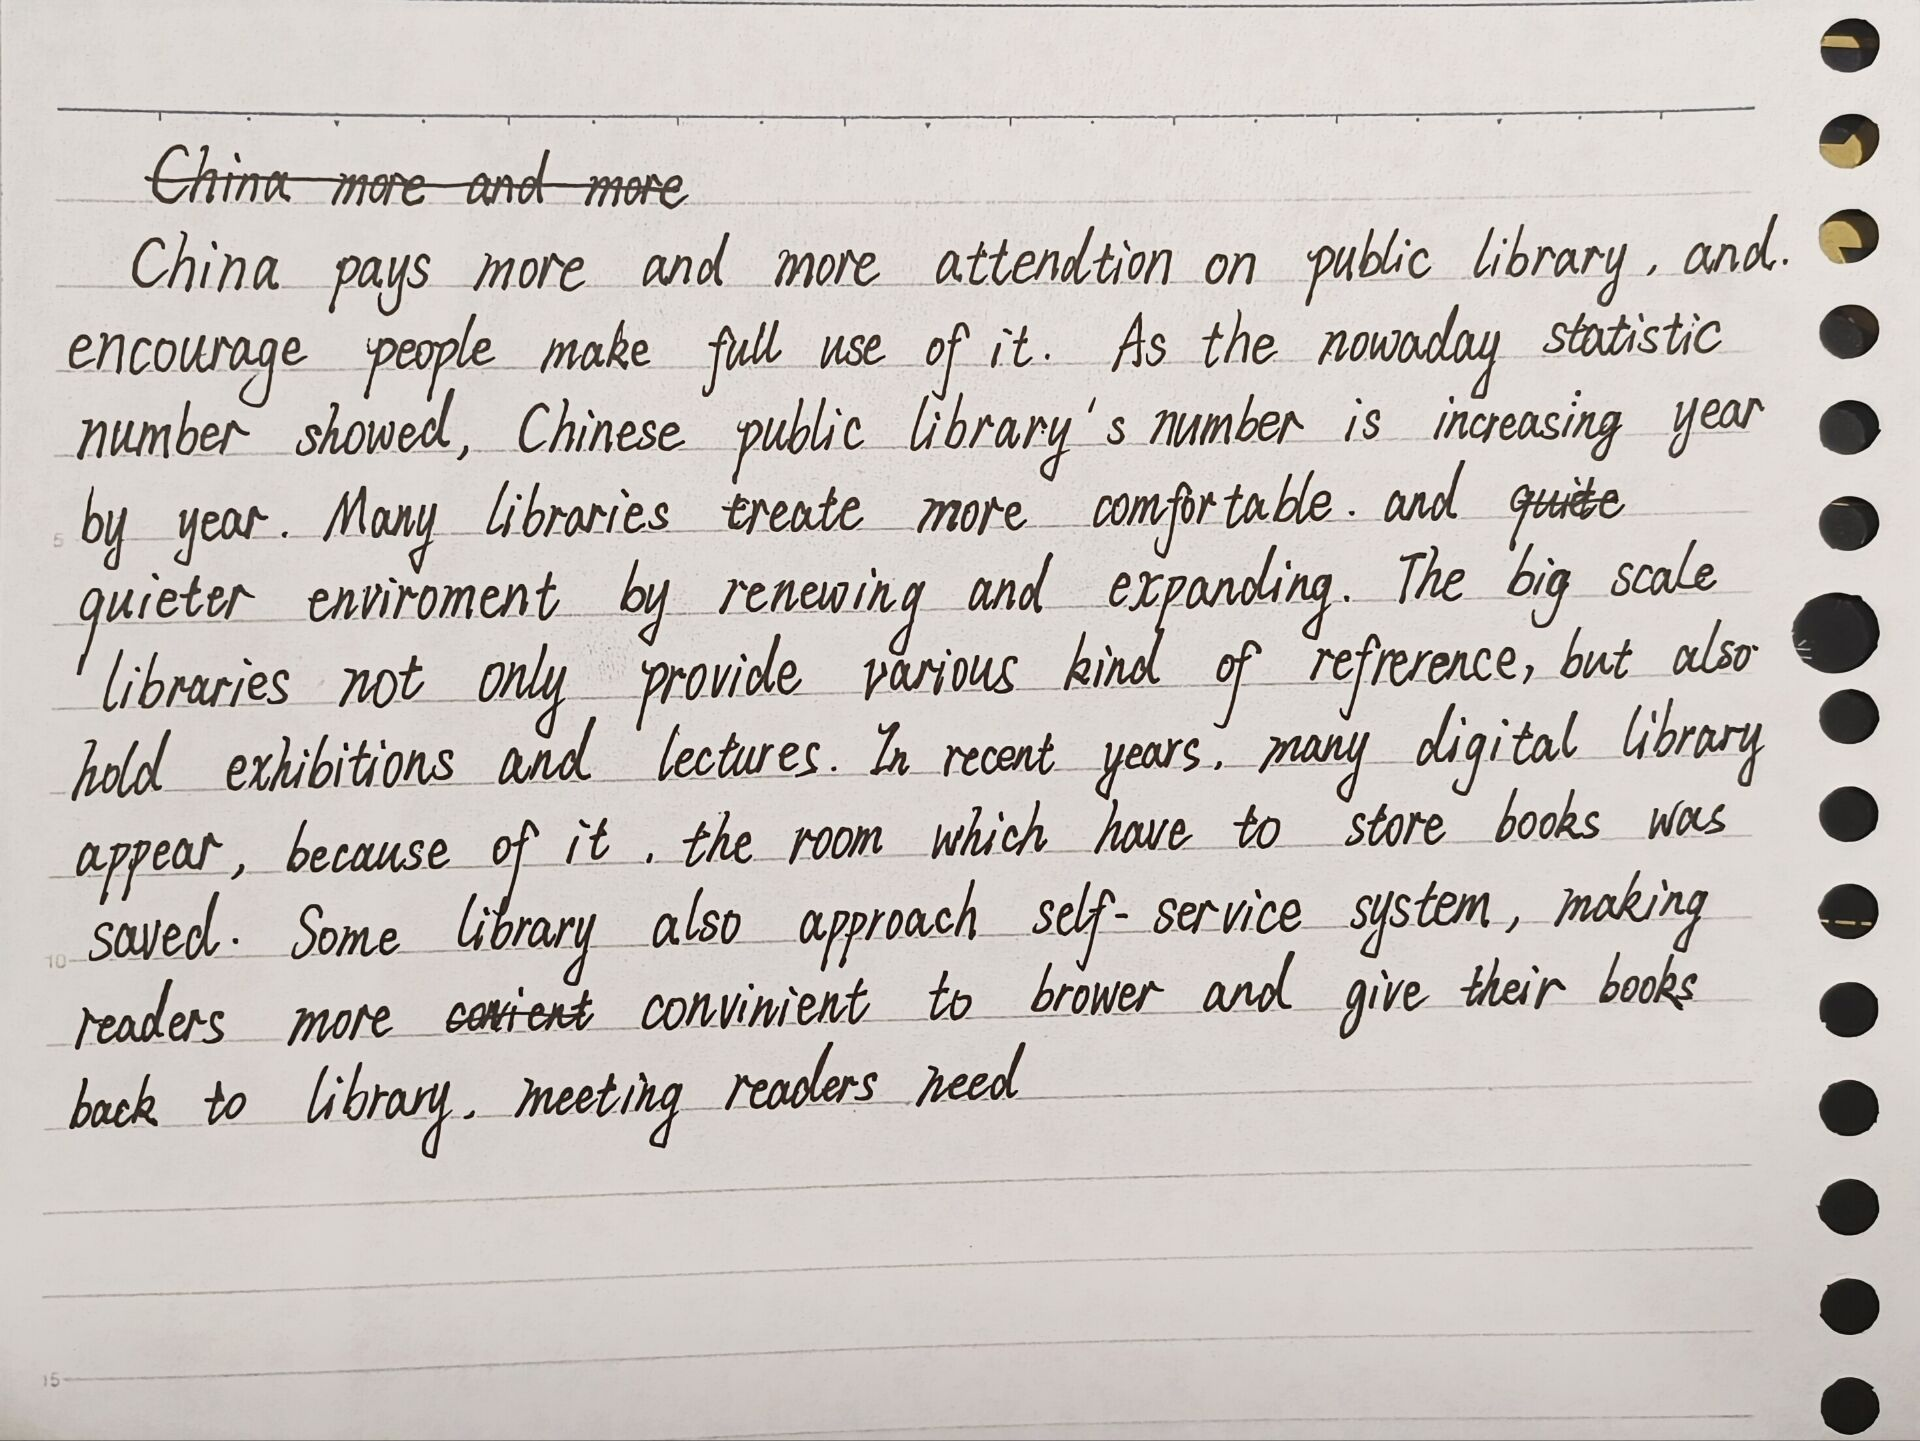 China more and more
China pays more and more attendtion on public library, and.
encourage people make full use of it. As the nowaday statistic
number showed, Chinese public library's number is increasing year
by year. Many libraries treate more comfortable. and quite
5
quieter enviroment by renewing and expanding. The big scale
libraries not only provide various kind of refrerence, but also
hold exhibitions and lectures. In recent years, many digital library
appear, because of it, the room which have to store books was
saved. Some library also approach self-service system, making
10
readers more convient convinient to brower and give their books
back to library, meeting readers need
15